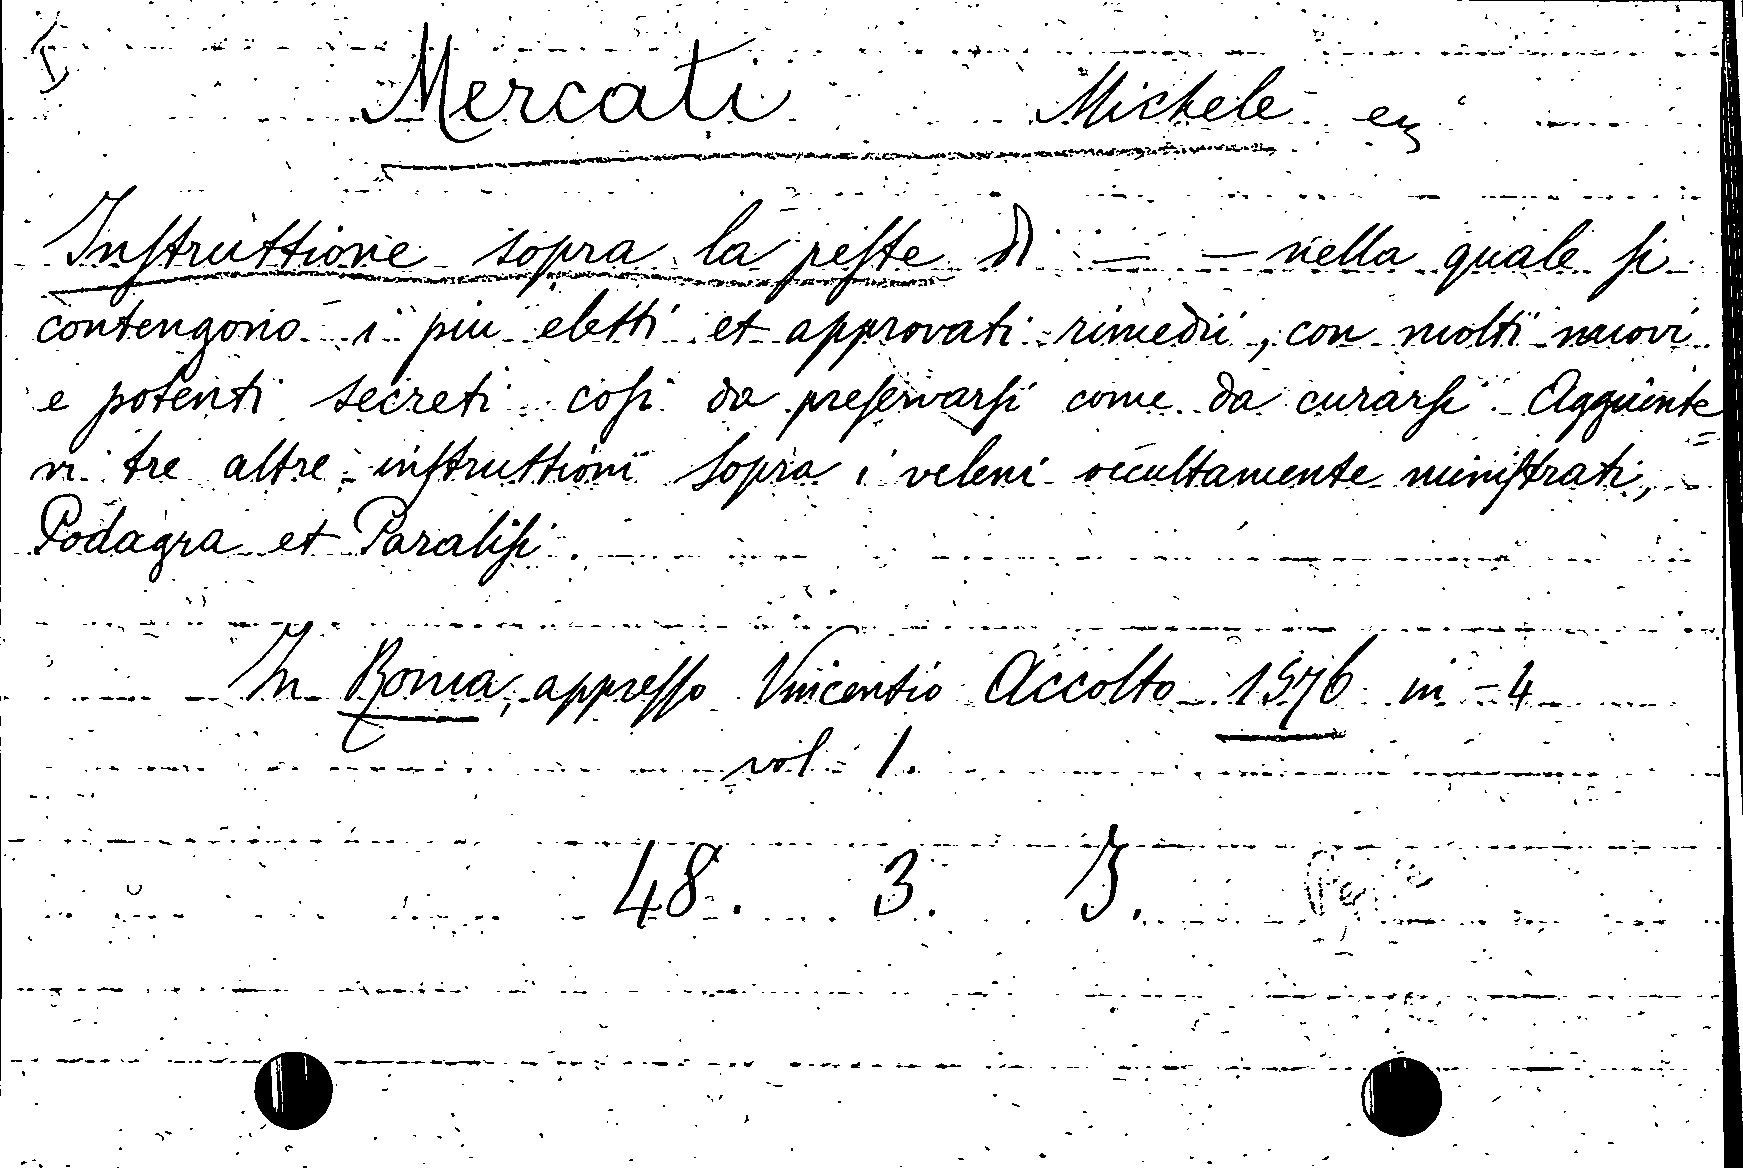 Mercati Michele
Inſtruttione sopra la peſte di — — nella quale ſi
contengono i piu eletti et approvati rimedii, con molti nuovi
e potenti secreti coſi da preſervarſi come da curarſi. Aggiunte
vi tre altre inſtruttioni sopra i veleni occultamente miniſtrati,
Podagra et Paraliſi.
In Roma, appreſſo Vincentio Accolto 1576 in - 4
vol 1.
48. 3. 3.